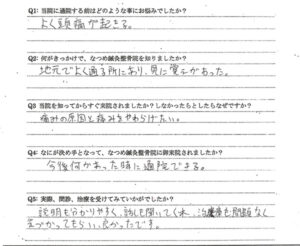 Q1: 当院に通院する前はどのような事にお悩みでしたか？
よく頭痛が起きる。
Q2: 何がきっかけで、なつめ鍼灸整骨院を知りましたか？
地元でよく通る所にあり、見に覚えがあった。
Q3 当院を知ってからすぐ来院されましたか？しなかったもとしたらなぜですか？
痛みの原因と痛みをやわらげたい。
Q4: なにが決め手となって、なつめ鍼灸整骨院に御来院されましたか？
今後何かあった時に通院できる。
Q5: 実際、問診、治療を受けてみていかがでしたか？
説明も分かりやすく、話しも聞いてくれ、治療を問題なく
気づかってもらい、良かったです。